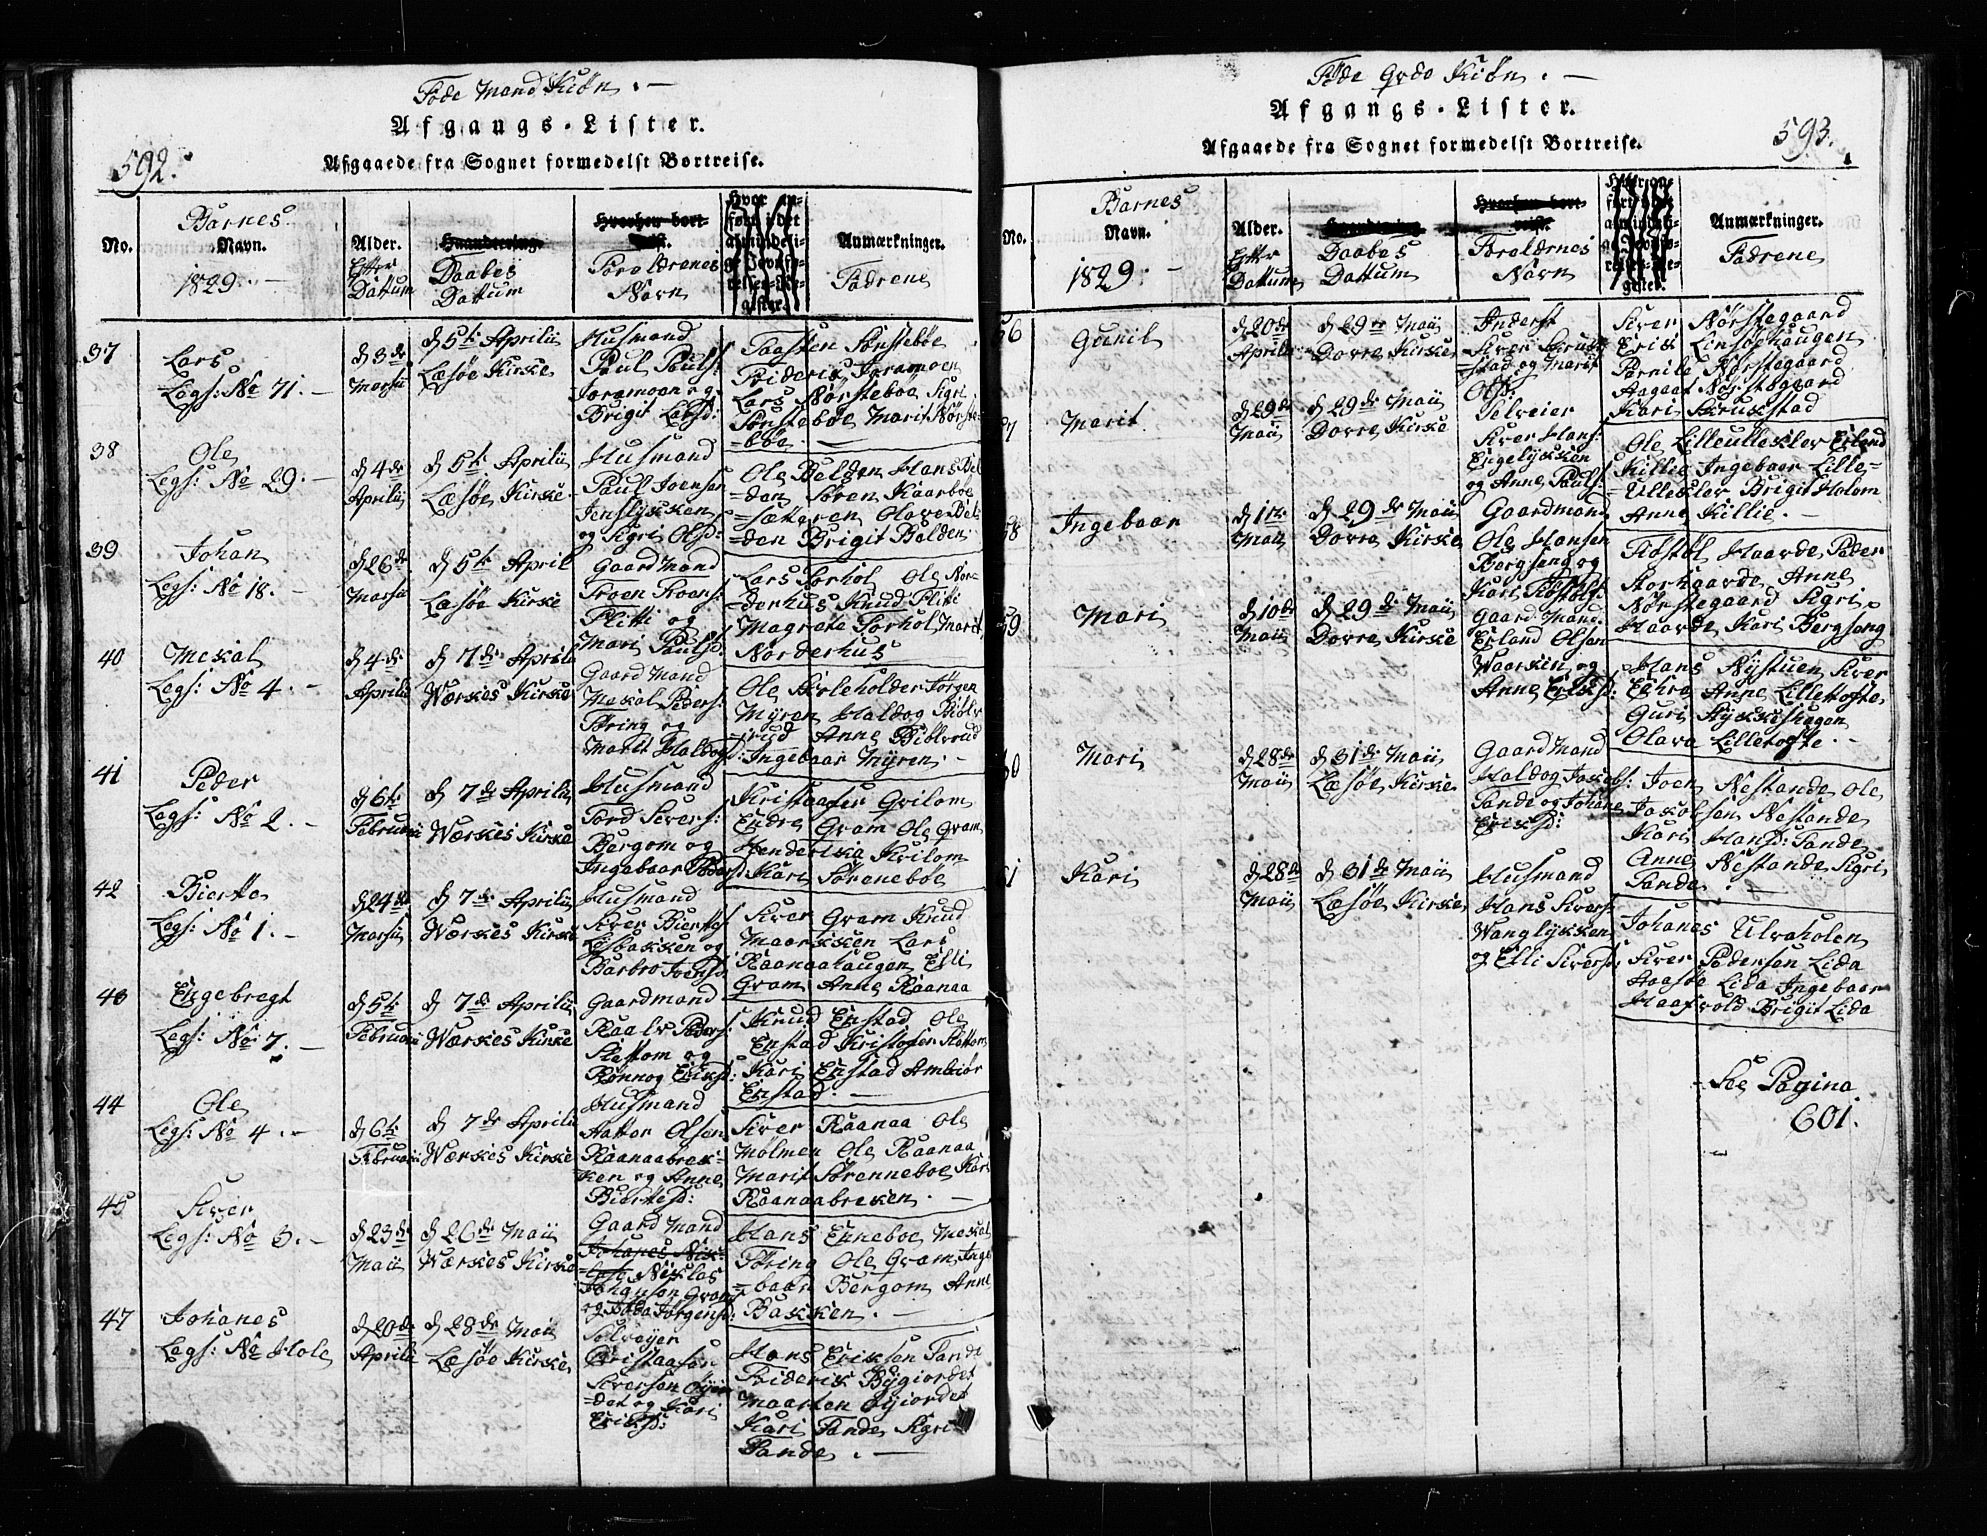 592.
Føde Mand Kiøn. —
Afgangs-Lister.
Afgaaede fra Sognet formedelst Bortreise.
No.
Barnes
Navn.
1829. —
Alder.
Efter
Dattum
Haandtering.
Daabes
Dattum
Hvorhen bort-
reist.
Foreldrenes
Navn
Hvor an-
ført i det
almindeli-
ge Jevnfø-
relses-Re-
gister.
Anmærkninger.
Fadrene
37
Lars
Legs: No 71. —
d 3de
Marsii
d 5te Aprilii
Læsøe Kirke
Husmand
Paul Pauls:
Joramoen og
Brigit Larsd:
Taasten Sønsteboe
Friderik Joramoen
Lars Nørsteboe Sigri
Sønsteboe Marit Nørste
=böe. —
38
Ole
Legs: No 29. —
d 4de
Aprilii
d 5te Aprilii
Læsøe Kirke
Husmand
Paul Joensen
Jenslykken
og Sigri Olsd:
Ole Belden Hans Bel
=den Søren Kaarbøe
=sætteren Olava Bel
=den Brigit Belden
39
Johan
Legs: No 18. —
d 26de
Marsii
d 5te April
Læsøe Kirke
Gaard Mand
Troen Troens:
Flitti og
Mari Paulsd:
Lars Sorhol Ole Nor
=derhus Knud Flitti
Magrete Sorhol Marit
Norderhus
40
Mekal
Legs: No 4. —
d 4de
Aprilii
d 7de Aprilii
Værkes Kirke
Gaard Mand
Mekal Peders:
Støring og
Marit Haldogsd:
Ole Kirleholder Jørgen
Myren Haldog Biølv
=rud Anne Biølvrud
Ingebaar Myren. —
41
Peder
Legs: No 2. —
d 6te
Februarii
d 7de Aprilii
Værkes Kirke
Husmand
Tord Sivers:
Bergom og
Ingebaar Pedersd:
Kristaafer Qvilom
Endre Gram Ole Gram
Henderikia Kvilom
Kari Søreneboe
42
Bierte
Legs: No 1. —
d 24de
Marsii
d 7de Aprilii
Værkes Kirke
Husmand
Siver Biertes
Løsbakken og
Barbro Joensd:
Siver Gram Knud
Maarkken Lars
Raanaahaugen Elli
Gram Anne Raanaa
43
Engebregt
Legs: No 7. —
d 5te
Februarii
d 7de Aprilii
Værkes Kirke
Gaardmand
Raalv Peders:
Slettom og
Rønnog Eriksd:
Knud Enstad Ole
Enstad Kristofer Slottom
Kari Enstad Ambiør
Enstad. —
44
Ole
Legs: No 4. —
d 6te
Februarii
d 7de Aprilii
Værkes Kirke
Husmand
Hattor Olsen
Raanaabrek-
ken og Anne
Biertesd:
Siver Raanaa Ole
Mølmen Ole Raanaa
Marit Sørenneboe Kari
Raanaabreken. —
45
Siver
Legs: No 3. —
d 23de
Maii
d 26de Maii
Værkes Kirke
Gaard Mand
Johanes Nik-
=las Niklas
Johansen Gram
og Joda Jørgensd:
Hans Enneboe Mekal
Støring Ole Gram Inge
=baar Bergom Anne
Bakken. —
47
Johanes
Legs: No Hole
d 20de
Aprilii
d 28de Maii
Læsøe Kirke
Selveyer
Cristaafen
Siversen Gyior
=det og Kari
Eriksd:
Hans Eriksen Tande
Friderik Bygiordet
Maarten Gyiordet
Kari Tande Sigri
Tande. —
593.
Føde Qvdo Kiøn. —
Afgangs-Lister.
Afgaaede fra Sognet formedelst Bortreise.
No.
Barnes
Navn.
1829. —
Alder.
Efter
Dattum
Haandtering.
Daabes
Dattum
Hvorhen bort-
reist.
Foreldrenes
Navn
Hvor an-
ført i det
almindeli-
ge Jevnfø-
relses-Re-
gister.
Anmærkninger.
Fadrene
56
Gunil
d 20de
Aprilii
d 29de Maii
Dovre Kirke
Inderst
Siver Skruk
=stad og Marit
Olsd:
Siver Nørstegaard
Erik Linsøehaugen
Pernile Nørstegaard
Aagaat Nørstegaard
Kari Skrukstad
57
Marit
d 29de
Maii
d 29de Maii
Dovre Kirke
Selveier
Siver Hans:
Engelykken
og Anne Pauls:
Ole Lilleullekler Erland
Killie Ingebaar Lille=
=Ulleklev Brigit Holom
Anne Killie. —
58
Ingebaar
d 10de
Maii
d 29de Maii
Dovre Kirke
Gaardmand
Ole Hansen
Bergseng og
Kari Tostølsd:
Tostøl Haarde Peder
Storhaarde Anne
Nørstegaard Sigri
Haarde Kari Bergseng
59
Mari
d 10de
Maii
d 29de Maii
Dovre Kirke
Gaard Mand
Erland Olsen
Waarkin og
Anne Eriksd:
Hans Nystuen Siver
Enkra Anne Lilletofte
Guri Stykkishagen
Olava Lilletofte. —
60
Mari
d 28de
Maii
d 31de Maii
Læsøe Kirke
Gaard Mand
Haldog Jakobs:
Tande og Johane
Eriksd:
Joen Nestande Ole
Jakobsen Nestande
Kari Hansd: Tande
Anne Nestande Sigri
Tande. —
61
Kari
d 28de
Maii
d 31de Maii
Læsøe Kirke
Husmand
Hans Sivers:
Wanglykken
og Elli Siversd:
Johanes Ulvaholen
Siver Pedersen Lida
Staaføe Lida Ingebaar
Haafvold Brigit Lida
See Pagina
601.